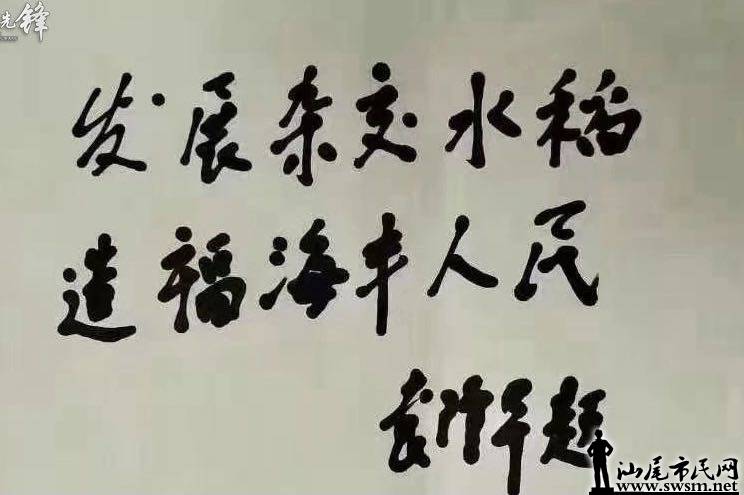 先锋
发展杂交水稻
造福海丰人民
袁隆平题
汕尾市民网
www.swsm.net